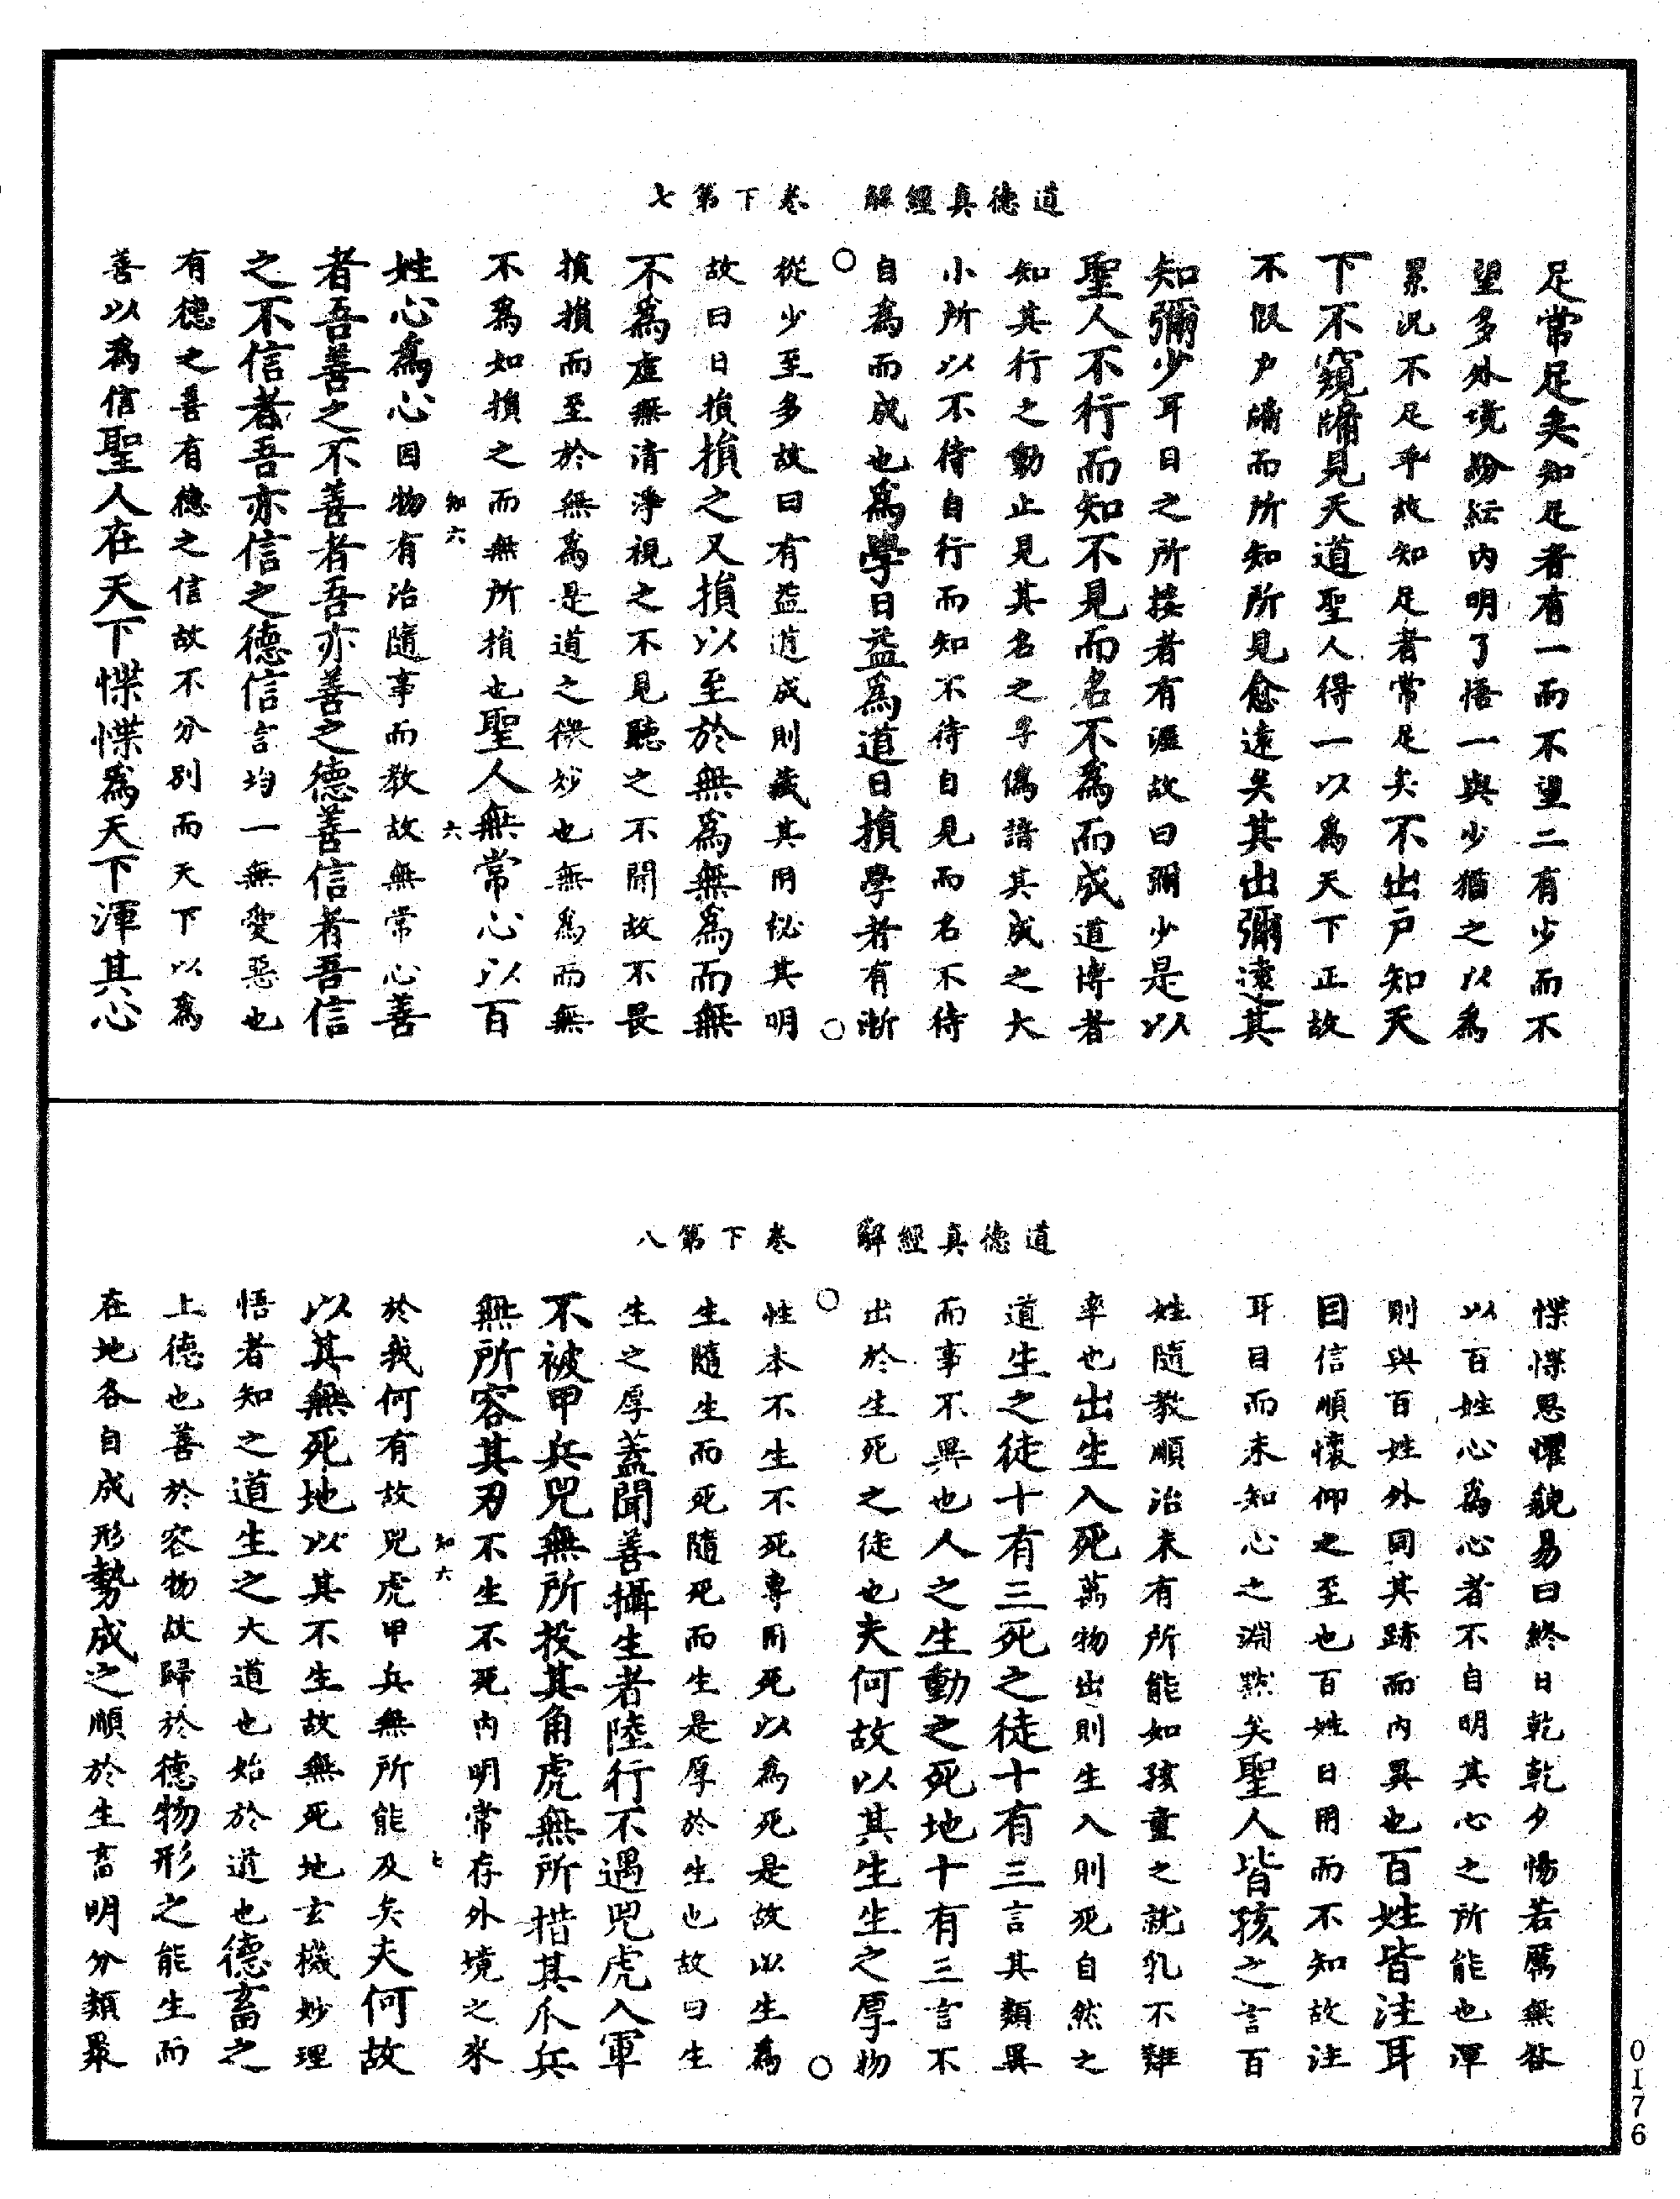 道德真經解　卷下第七
足常足矣知足者有一而不望二有少而不
望多外境紛紜內明了悟一與少猶之以為
累況不足乎故知足者常足矣不出戶知天
下不窺牖見天道聖人得一以為天下正故
不假戶牖而所知所見愈遠矣其出彌遠其
知彌少耳目之所接者有涯故曰彌少是以
聖人不行而知不見而名不為而成道博者
如其行之動止見其名之孚僞諳其成之大
小所以不待自行而知不待自見而名不待
自為而成也為學日益為道日損學者有漸
從少至多故曰有益道成則藏其用祕其明
故曰日損損之又損以至於無為無為而無
不為虛無清淨視之不見聽之不聞故不畏
損損而至於無為是道之微妙也無為而無
不為如損之而無所損也聖人無常心以百
姓心為心因物有治隨事而教故無常心善
者吾善之不善者吾亦善之德善信者吾信
之不信者吾亦信之德信言均一無愛惡也
有德之善有德之信故不分別而天下以為
善以為信聖人在天下惵惵為天下渾其心
知六
六
道德真經解　卷下第八
惵惵恩懼貌易曰終日乾乾夕惕若厲無咎
以百姓心為心者不自明其心之所能也渾
則與百姓外同其跡而內異也百姓皆注耳
目信順懷仰之至也百姓日用而不知故注
耳目而未知心之淵默矣聖人皆孩之言百
姓隨教順治未有所能如孩童之就乳不難
率也出生入死萬物出則生入則死自然之
道生之徒十有三死之徒十有三言其類異
而事不異也人之生動之死地十有三言不
出於生死之徒也夫何故以其生生之厚物
性本不生不死專用死以為死是故以生為
生隨生而死隨死而生是厚於生也故曰生
生之厚蓋聞善攝生者陸行不遇兕虎入軍
不被甲兵兕無所投其角虎無所措其爪兵
無所容其刃不生不死內明常存外境之來
於我何有故兕虎甲兵無所能及矣夫何故
以其無死地以其不生故無死地玄機妙理
悟者知之道生之大道也始於道也德畜之
上德也善於容物故歸於德物形之能生而
在地各自成形勢成之順於生畜明分類眾
知六
七
0176